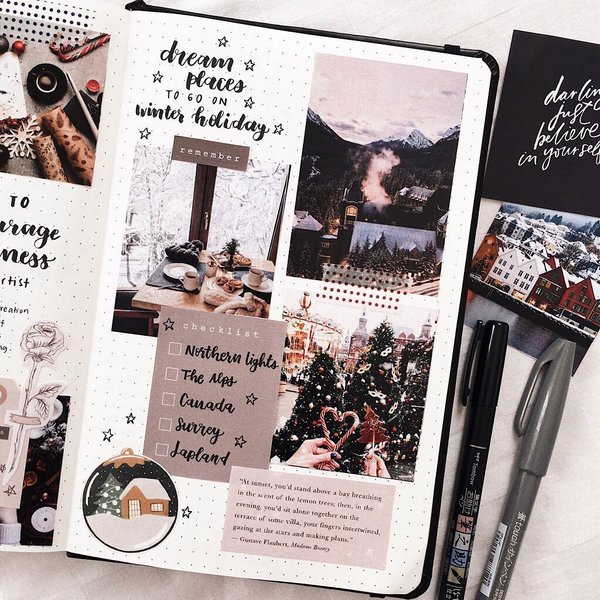 dream
places
TO GO ON
winter holiday
remember
checklist
Northern lights
The Alps
Canada
Surrey
Lapland
"At sunset, you'd stand above a bay breathing
in the scent of the lemon trees; then, in the
evening, you'd sit alone together on the
terrace of some villa, your fingers intertwined,
gazing at the stars and making plans."
— Gustave Flaubert, Madame Bovary
TO
urage
ness
artist
creation
darling
just
believe
in yourself
Tombow
touch